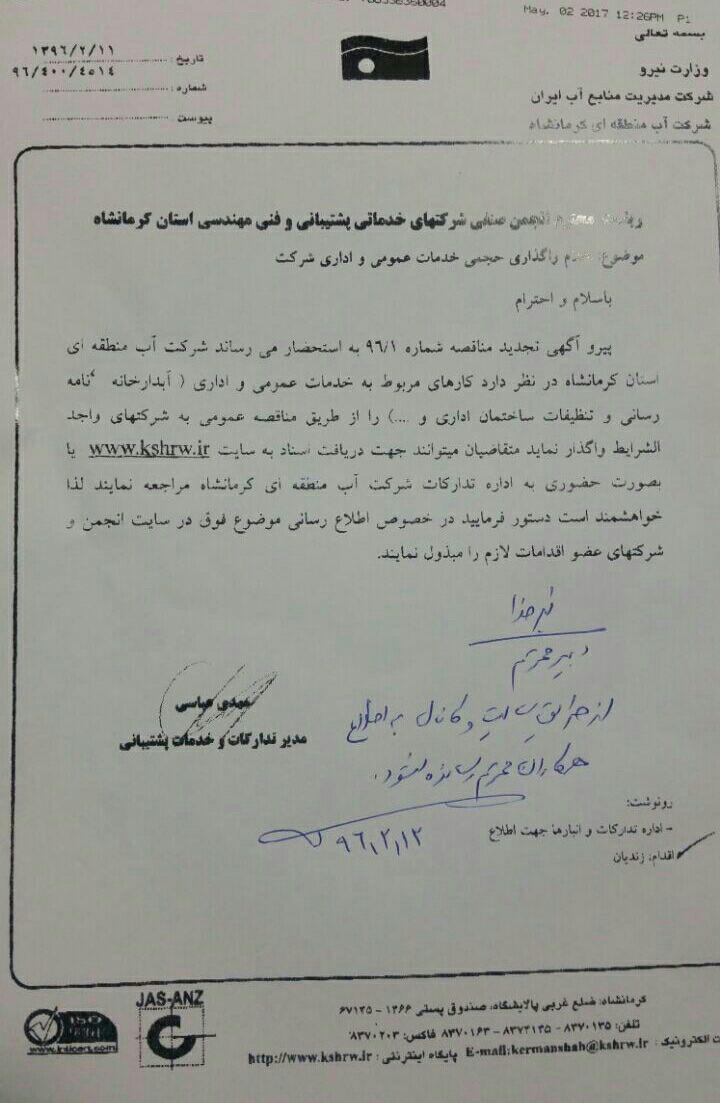 May. 02 2017 12:26PM P1
بسمه تعالی
وزارت نیرو
شرکت مدیریت منابع آب ایران
شرکت آب منطقه ای کرمانشاه
تاریخ : ۱۳۹۶/۲/۱۱
شماره : ۹۶/۴۰۰/۴۵۱۴
پیوست :
انجمن صنفی شرکتهای خدماتی پشتیبانی و فنی مهندسی استان کرمانشاه
موضوع: واگذاری حجمی خدمات عمومی و اداری شرکت
باسلام و احترام
پیرو آگهی تجدید مناقصه شماره ۹۶/۱ به استحضار می رساند شرکت آب منطقه ای
استان کرمانشاه در نظر دارد کارهای مربوط به خدمات عمومی و اداری ( آبدارخانه ، نامه
رسانی و تنظیفات ساختمان اداری و ....) را از طریق مناقصه عمومی به شرکتهای واجد
الشرایط واگذار نماید متقاضیان میتوانند جهت دریافت اسناد به سایت www.kshrw.ir یا
بصورت حضوری به اداره تدارکات شرکت آب منطقه ای کرمانشاه مراجعه نمایند لذا
خواهشمند است دستور فرمایید در خصوص اطلاع رسانی موضوع فوق در سایت انجمن و
شرکتهای عضو اقدامات لازم را مبذول نمایند.
دبیر محترم
از طریق سایت و کانال به اطلاع
همکاران محترم رسانده شود.
۹۶,۲,۱۲
مهدی عباسی
مدیر تدارکات و خدمات پشتیبانی
رونوشت:
- اداره تدارکات و انبارها جهت اطلاع
اقدام: زندیان
JAS-ANZ
ISO
کرمانشاه: ضلع غربی پالایشگاه، صندوق پستی ۱۳۶۶ - ۶۷۱۴۵
تلفن: ۸۳۷۰۱۳۵ - ۸۳۷۲۱۲۵ - ۸۳۷۰۱۶۳ فاکس: ۸۳۷۰۲۰۳
ت الکترونیک : E-mail:kermanshah@kshrw.ir پایگاه اینترنتی : http://www.kshrw.ir